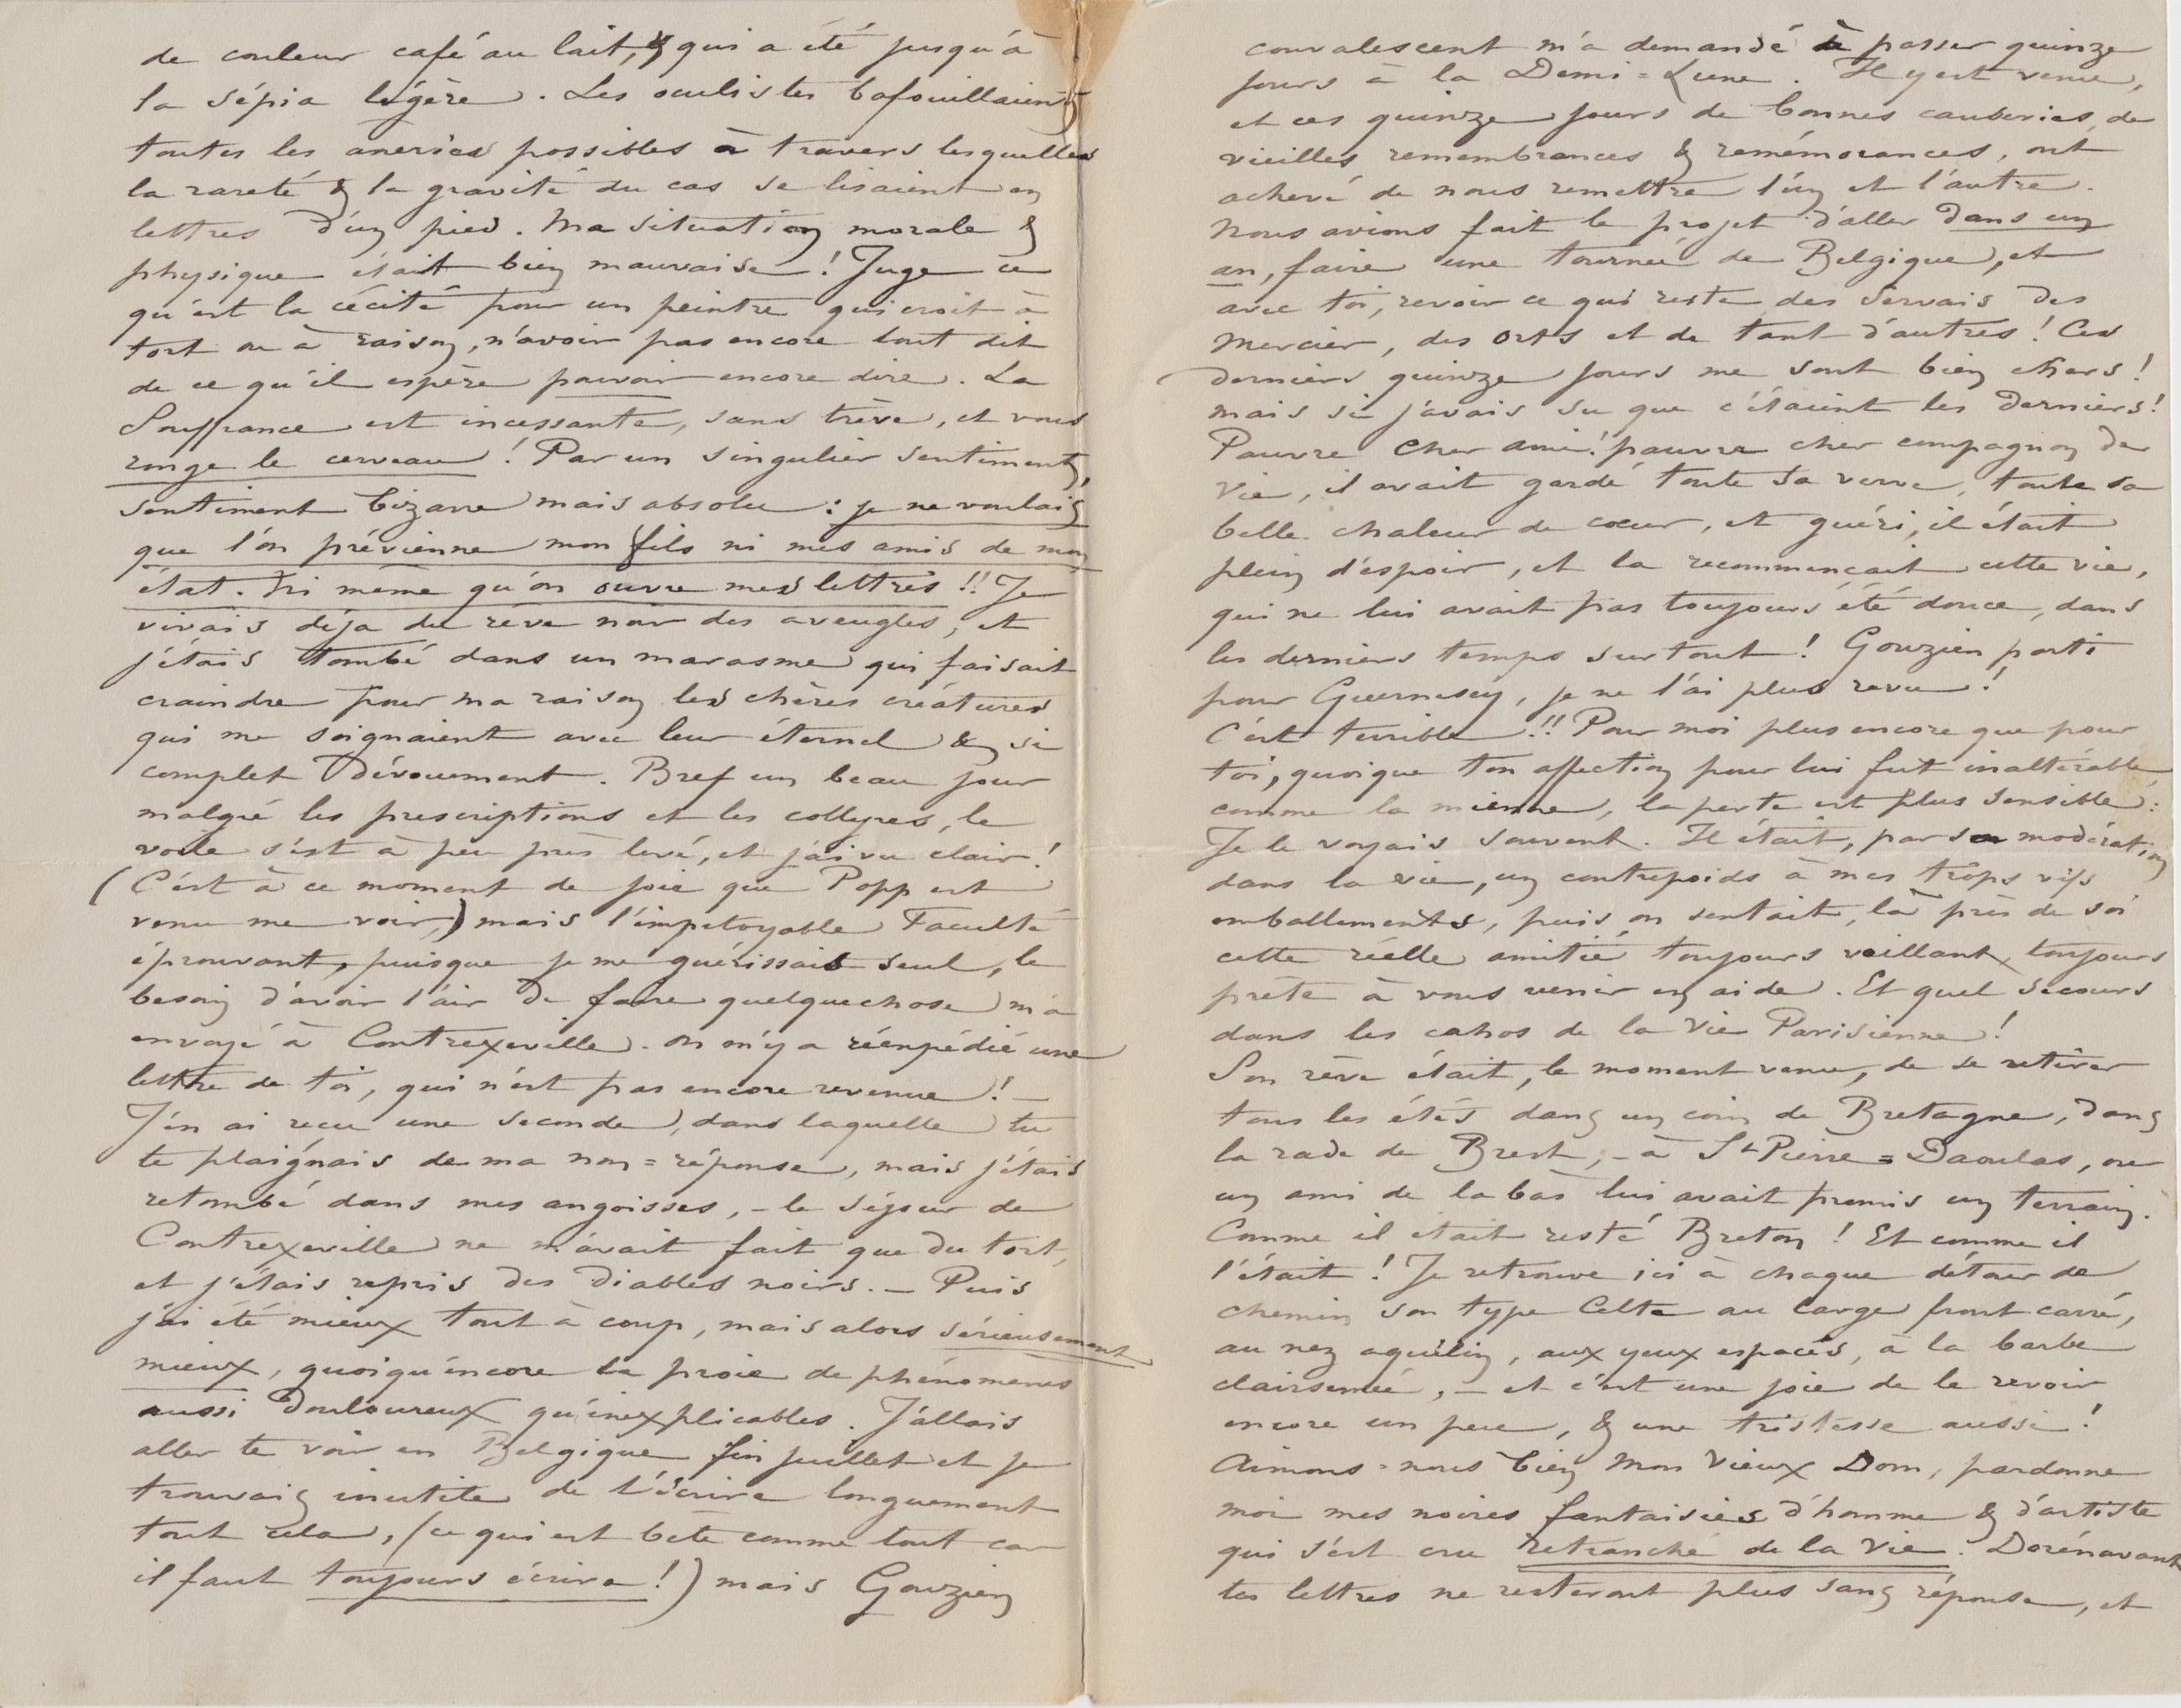 de couleur café au lait, & qui a été jusqu'à
la sépia légère. Les oculistes bafouillaient
toutes les aneries possibles à travers lesquelles
la rareté & la gravité du cas se lisaient en
lettres d'un pied. Ma situation morale &
physique était bien mauvaise! Juge ce
qu'est la cécité pour un peintre qui croit à
tort ou à raison, n'avoir pas encore tout dit
de ce qu'il espère pouvoir encore dire. La
Souffrance est incessante, sans trève, et vous
ronge le cerveau! Par un singulier sentiment,
sentiment bizarre mais absolu: je ne voulais
que l'on prévienne mon fils ni mes amis de mon
état. Ni même qu'on ouvre mes lettres!! Je
vivais déja du rêve noir des aveugles, et
j'étais tombé dans un marasme qui faisait
craindre pour ma raison les chères créatures
qui me soignaient avec leur éternel & si
complet dévouement. Bref un beau jour
malgré les prescriptions et les collyres, le
voile s'est à peu près levé, et j'ai vu clair!
(C'est à ce moment de joie que Popp est
venu me voir,) mais l'impitoyable Faculté
éprouvant, puisque je me guérissais seul, le
besoin d'avoir l'air de faire quelquechose m'a
envoyé à Contrexeville. On m'y a réenpédié une
lettre de toi, qui n'est pas encore revenue! —
J'en ai reçu une seconde, dans laquelle tu
te plaignais de ma non=réponse, mais j'étais
retombé dans mes angoisses, – le séjour de
Contrexeville ne m'avait fait que du tort,
et j'étais repris des diables noirs. — Puis
j'ai été mieux tout à coup, mais alors sérieusement
mieux, quoiqu'encore la proie de phénomènes
aussi douloureux qu'inexplicables. J'allais
aller te voir en Belgique fin juillet et je
trouvais inutile de t'écrire longuement
tout cela, (ce qui est bête comme tout car
il faut toujours écrire!) mais Gouzien
convalescent m'a demandé à passer quinze
jours à la Demi=Lune. Il y est venu,
et ces quinze jours de bonnes causeries, de
vieilles remembrances & remémorances, ont
achevé de nous remettre l'un et l'autre.
Nous avions fait le projet d'aller dans un
an, faire une tournée de Belgique, et
avec toi, revoir ce qui reste des Servais des
Mercier, des Orts et de tant d'autres! Ces
derniers quinze jours me sont bien chers!
mais si j'avais su que c'étaient les derniers!
Pauvre cher ami! pauvre cher compagnon de
vie, il avait gardé toute sa verve, toute sa
belle chaleur de cœur, et guéri, il était
plein d'espoir, et la recommençait cette vie,
qui ne lui avait pas toujours été douce, dans
les derniers temps surtout! Gouzien parti
pour Guernesey, je ne l'ai plus revu!
C'est terrible!!! Pour moi plus encore que pour
toi, quoique ton affection pour lui fut inaltérable
comme la mienne, la perte est plus sensible:
Je le voyais souvent. Il était, par sa modération
dans la vie, un contrepoids à mes trops vifs
emballements, puis on sentait, là près de soi
cette réelle amitié toujours veillant, toujours
prête à vous venir en aide. Et quel secours
dans les cahos de la vie Parisienne!
Son rêve était, le moment venu, de se retirer
tous les étés dans un coin de Bretagne, dans
la rade de Brest, – à St Pierre=Daoulas, ou
un ami de la bas lui avait promis un terrain.
Comme il etait resté Breton! Et comme il
l'était! Je retrouve ici à chaque détour de
chemin son type Celte au large front carré,
au nez aquilin, aux yeux espacés, à la barbe
clairsemée, – et c'est une joie de le revoir
encore un peu, & une tristesse aussi!
Aimons=nous bien Mon Vieux Dom, pardonne
moi mes noires fantaisies d'homme & d'artiste
qui s'est cru retranché de la Vie. Dorénavant
tes lettres ne resteront plus sans réponse, et